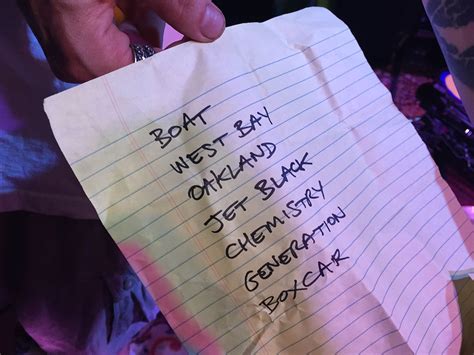 BOAT
WEST BAY
OAKLAND
JET BLACK
CHEMISTRY
GENERATION
BOXCAR